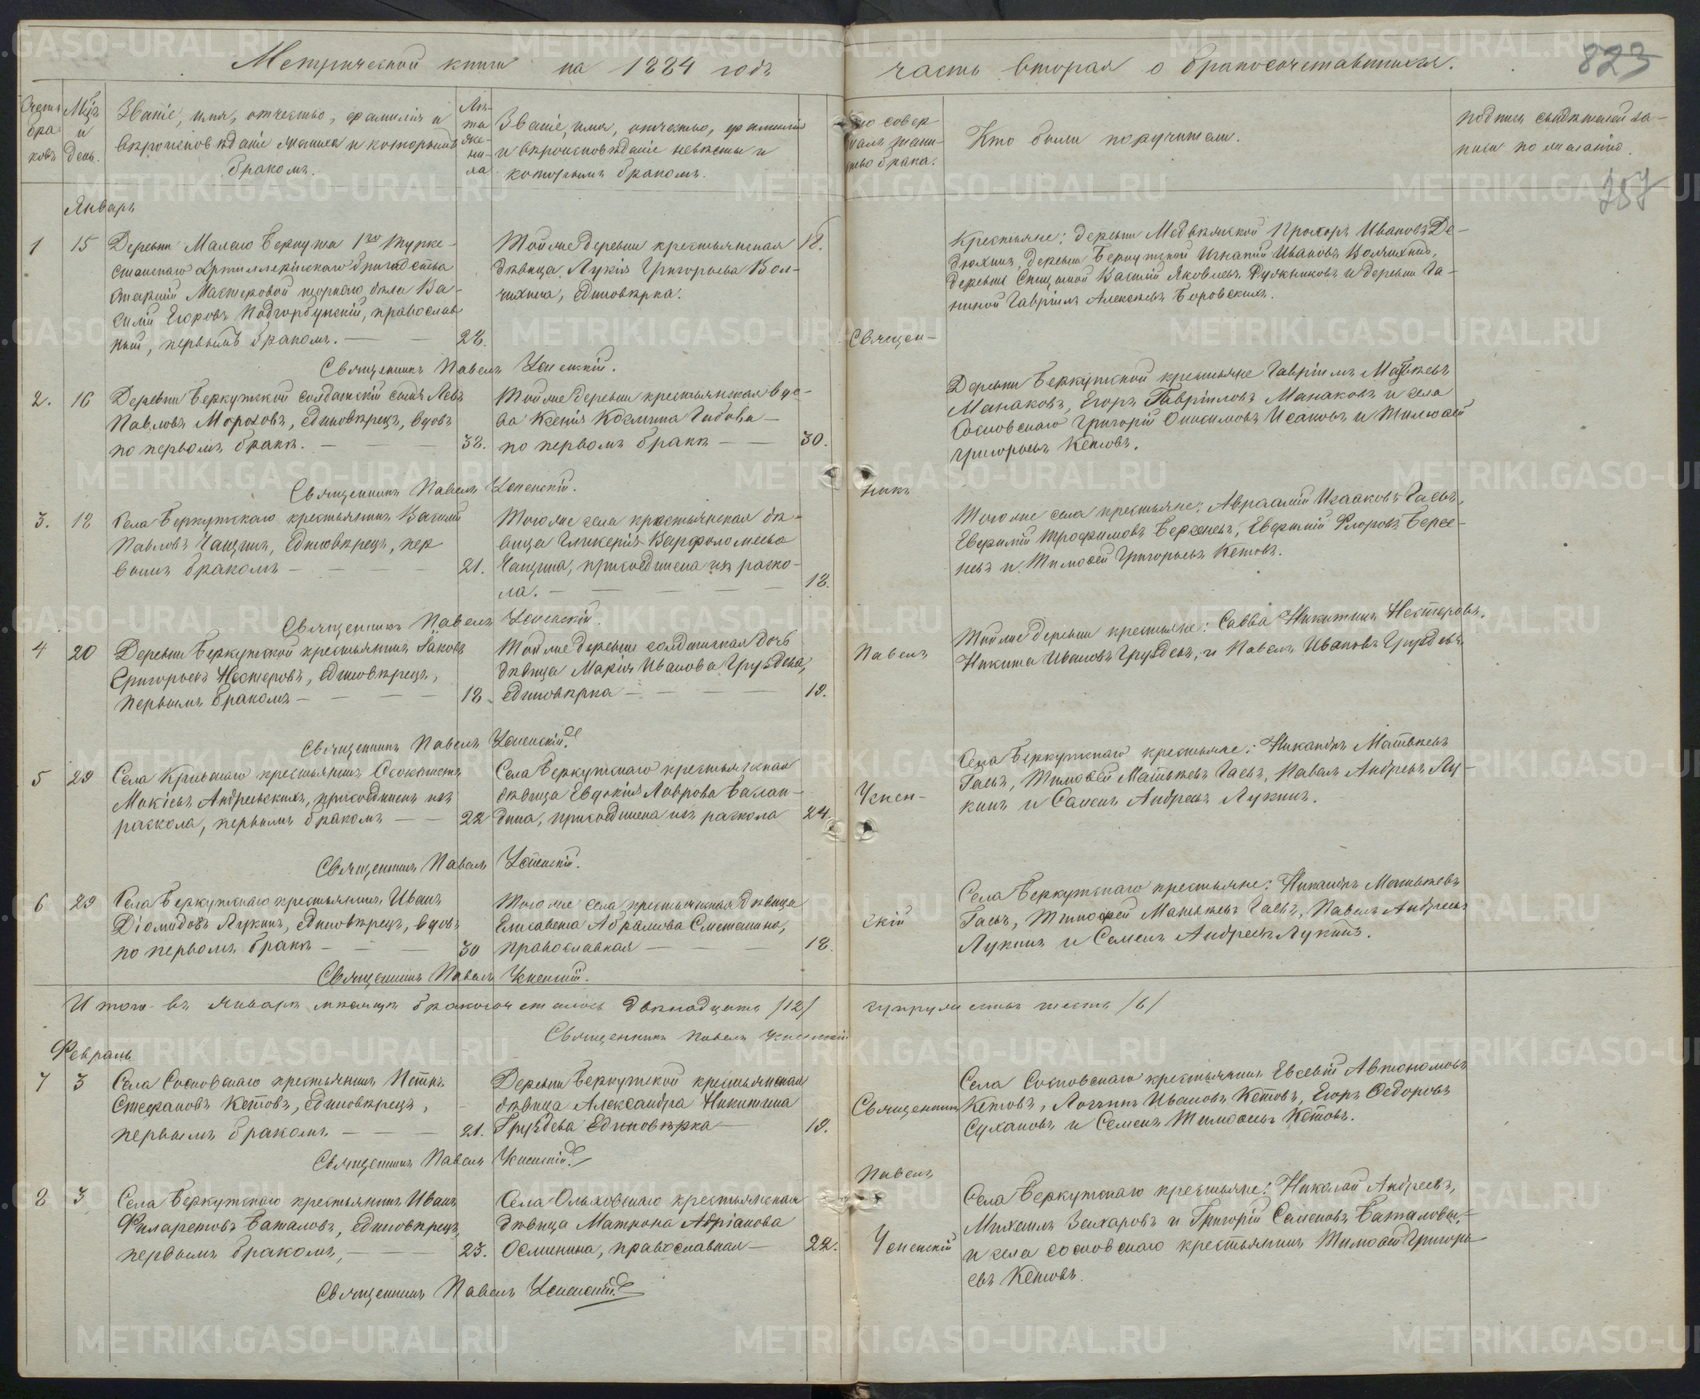 Метрической книги на 1884 годъ
часть вторая о бракосочетавшихся.
823
757
Счетъ браковъ
Мѣц. и день.
Званіе, имя, отчество, фамилія и
вѣроисповѣданіе жениха и которымъ
бракомъ.
Лѣта жениха
Званіе, имя, отчество, фамилія
и вѣроисповѣданіе невѣсты и
которымъ бракомъ.
Кто совершалъ таинство брака.
Кто были поручители.
подпись свидѣтелей записи по желанію.
Январь
1 15 Деревни Малаго Беркута 1го Турке-
станскаго Артиллерійскаго
старшій Мастеровой Ва-
силій Егоровъ Подгорбунскій, православ-
ный, первымъ бракомъ. — — 28.
Той же деревни крестьянская 18.
дѣвица Лукія Григорьева Вол-
чихина, единовѣрка.
Крестьяне: деревни Медвѣжской Прохоръ Ивановъ Де-
дюхинъ, деревни Беркутской Игнатій Ивановъ Волчихинъ,
деревни Василій Яковлевъ и деревни Га-
ниной Гавріилъ Алексѣевъ Боровскихъ.
Священ-
Священникъ Павелъ Успенскій.
2. 16 Деревни Беркутской солдатскій сынъ Левъ
Павловъ Морозовъ, единовѣрецъ, вдовъ
по первомъ бракѣ. — — 38.
Той же деревни крестьянская вдо-
ва Ксенія Козмина Гибова —
по первомъ бракѣ — — 30.
Деревни Беркутской крестьяне Гавріилъ Матвѣевъ
Манаковъ, Егоръ Гавріиловъ Манаковъ и села
Сосновскаго Григорій Онисимовъ Исаковъ и Тимофей
Григорьевъ Кетовъ.
Священникъ Павелъ Успенскій.
никъ
3. 18 Села Беркутскаго крестьянинъ Василій
Павловъ Чащинъ, единовѣрецъ, пер
вымъ бракомъ — — — — 21.
Того же села крестьянская дѣ-
вица Гликерія Варфоломеева
Чащина, присоединена изъ раско-
ла. — — — — 18.
Того же села крестьяне: Авраамій Исааковъ Гаевъ,
Евфимій Трофимовъ Берсеневъ, Евфимій Флоровъ Берсе-
невъ и Тимофей Григорьевъ Кетовъ.
Священникъ Павелъ Успенскій.
4 20 Деревни Беркутской крестьянинъ Іаковъ
Григорьевъ Нестеровъ, единовѣрецъ,
первымъ бракомъ — — — — 18.
Той же деревни солдатская дочь
дѣвица Марія Иванова Груздева,
единовѣрка — — — — 19.
Павелъ
Той же деревни крестьяне: Савва Никитинъ Нестеровъ,
Никита Ивановъ Груздевъ, и Павелъ Ивановъ Груздевъ
Священникъ Павелъ Успенскій.
5 29 Села Кривскаго крестьянинъ Ѳеоктистъ
Мокіевъ Андреевскихъ, присоединенъ изъ
раскола, первымъ бракомъ — — 22
Села Беркутскаго крестьянская
дѣвица Евдокія Лаврова Балан-
дина, присоединена изъ раскола 24.
Успен-
Села Беркутскаго крестьяне: Никандръ Матвѣевъ
Гаевъ, Тимофей Матвѣевъ Гаевъ, Павелъ Андреевъ Лу-
кинъ и Семенъ Андреевъ Лукинъ.
Священникъ Павелъ Успенскій.
6 29 Села Беркутскаго крестьянинъ Иванъ
Діомидовъ Лукинъ, единовѣрецъ, вдовъ
по первомъ бракѣ — — 30
Того же села крестьянская дѣвица
Елисавета Абрамова Сметанина,
православная — — 18.
скій
Села Беркутскаго крестьяне: Никандръ Матвѣевъ
Гаевъ, Тимофей Матвѣевъ Гаевъ, Павелъ Андреевъ
Лукинъ и Семенъ Андреевъ Лукинъ.
Священникъ Павелъ Успенскій.
Итого въ Январѣ мѣсяцѣ бракосочеталось двѣнадцать /12/
супружествъ шесть /6/
Священникъ Павелъ Успенскій
Февраль
7 3 Села Сосновскаго крестьянинъ Петръ
Стефановъ Кетовъ, единовѣрецъ,
первымъ бракомъ — — — 21.
Деревни Беркутской крестьянская
дѣвица Александра Никитина
Груздева Единовѣрка — 19.
Священникъ
Села Сосновскаго крестьянинъ Евсевій Автономовъ
Кетовъ, Логинъ Ивановъ Кетовъ, Егоръ Ѳедоровъ
Сухановъ и Семенъ Тимофеевъ Кетовъ.
Священникъ Павелъ Успенскій.
Павелъ
8 3 Села Беркутскаго крестьянинъ Иванъ
Филаретовъ Баталовъ, единовѣрецъ,
первымъ бракомъ, — — — 23.
Села Ольховскаго крестьянская
дѣвица Матрона Авріанова
Осминина, православная — 22.
Успенскій
Села Беркутскаго крестьяне: Николай Андреевъ,
Михаилъ Захаровъ и Григорій Семеновъ Баталовы,
и села сосновскаго крестьянинъ Тимофей Григорь
евъ Кетовъ.
Священникъ Павелъ Успенскій.
METRIKI.GASO-URAL.RU